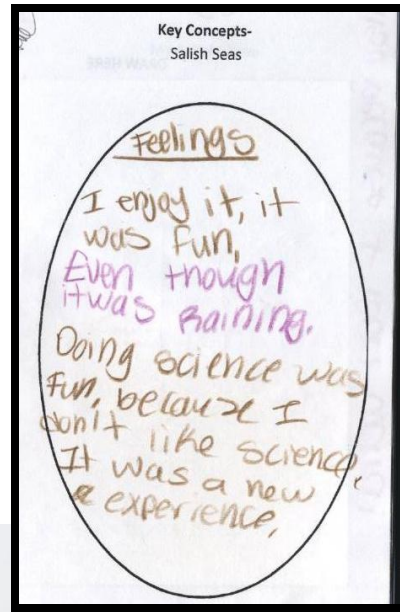 Key Concepts-
Salish Seas
Feelings
I enjoy it, it
was fun,
Even though
it was Raining.
Doing science was
Fun, because I
don't like science,
It was a new
experience,